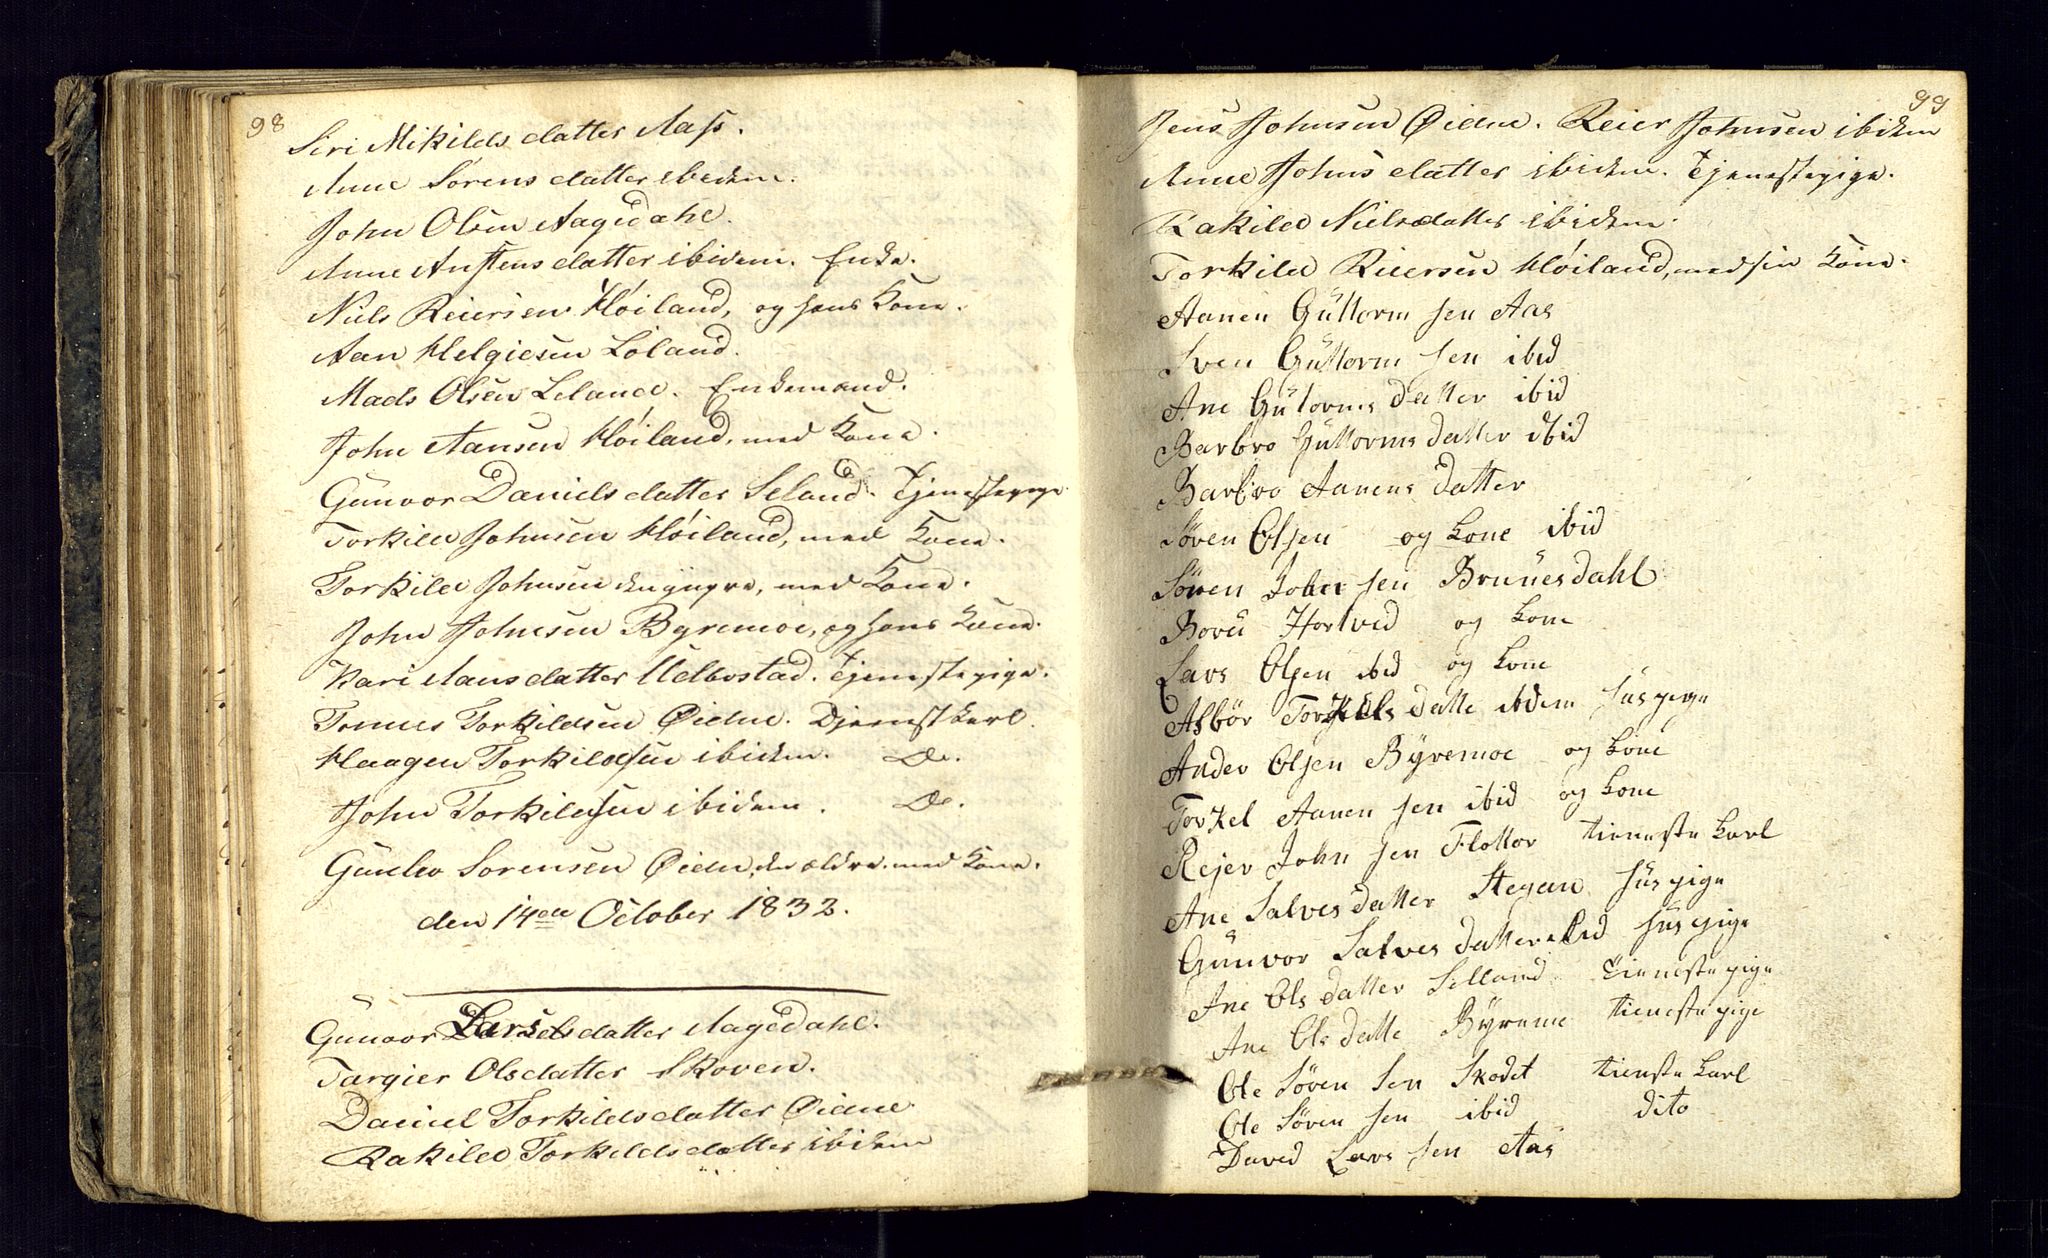 98
Siri Mikilds datter Aass.
Anne Sørens datter ibidem.
John Olsen Aagedahl.
Anne Austens datter ibidem. Enke.
Niels Reiersen Høiland, og hans Kone.
Aan Helgiesen Loland.
Mads Olsen Leland. Enkemand.
John Aansen Høiland, med Kone.
Gunvor Daniels datter Seland. Tjenestepige
Torkild Johnsen Høiland, med Kone.
Torkild Johnsen den yngre, med Kone.
John Johnsen Byremoe, og hans Kone.
Kari Aans datter Udbostad. Tjenestepige.
Tomes Torkildsen Øidne. Djenestkarl.
Haagen Torkildsen ibidem. Do.
John Torkildsen ibidem. Do.
Gunlev Sorensen Øidne, den ældre. med Kone.
den 14de October 1832.
Gunvor Larsdatter Aagedahl.
Targier Olsdatter Skoven.
Daniel Torkilds datter Øidne
Rakild Torkilds datter ibidem
99
Jens Johnsen Øidne. Reier Johnsen ibidem
Anne Johns datter ibidem. Tjenestepige.
Rakild Nielsdatter ibidem.
Torkild Reiersen Høiland, med sin Kone.
Aanen Guttorm sen Aas
Sven Guttorm sen ibid
Ane Gutorms datter ibid
Barbro Guttorms datter ibid
Barbro Aanens datter
Søren Olsen og Kone ibid
Søren Jober sen Brunesdahl
Boru Hortved og Kone
Lars Olsen ibid og Kone
Asbør Torkels datte ibdem huspige
Ander Olsen Byremoe og Kone
Torkel Aanen sen ibid og Kone
Rejer John sen Flottor tieneste karl
Ane Salves datter Stegan huspige
Gunvor Salves datter ibid huspige
Ane Ols datter Selland tienestepige
Ane Ols datte Byreme tienestepige
Ole Søren sen Skodet tienste karl
Ole Søren sen ibid dito
David Lars sen Aas